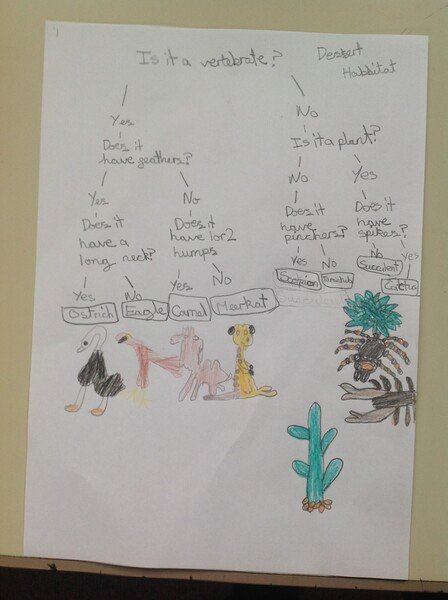 Is it a vertebrate?
Dessert
Habbitat
Yes
Does it
have feathers?
Yes
Does it
have a
long neck?
Yes
Ostrich
No
Eagle
No
Does it
have 1 or 2
humps
Yes
Camel
No
Meerkat
No
Is it a plant?
No
Does it
have
pinchers?
Yes
Scorpion
No
Yes
Does it
have
spikes?
No
Succulent
Yes
Cactus